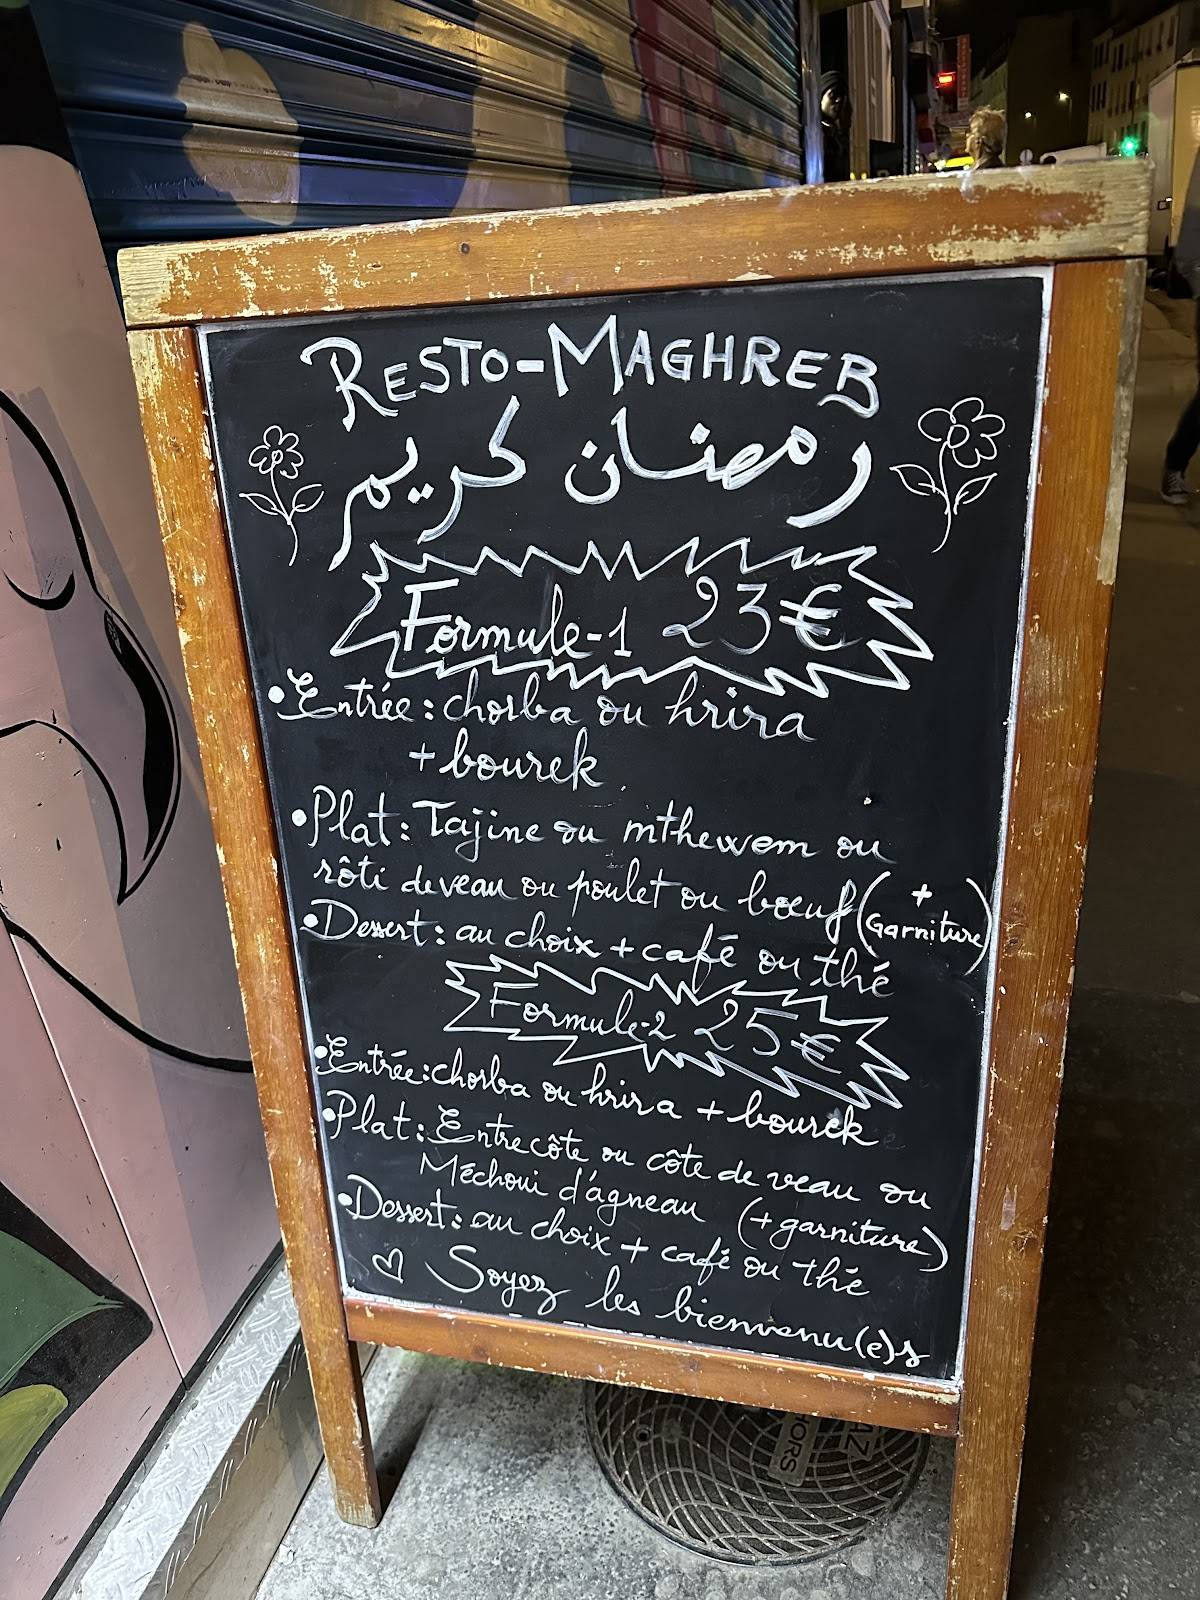 RESTO-MAGHREB
رمضان كريم
Formule-1 23€
•Entrée: chorba ou hrira
+ bourek
•Plat: Tajine ou mthewem ou
rôti de veau ou poulet ou bœuf (+ Garniture)
•Dessert: au choix + café ou thé
Formule-2 25€
•Entrée: chorba ou hrira + bourek
•Plat: Entrecôte ou côte de veau ou
Méchoui d'agneau (+ garniture)
•Dessert: au choix + café ou thé
♡ Soyez les bienvenu(e)s